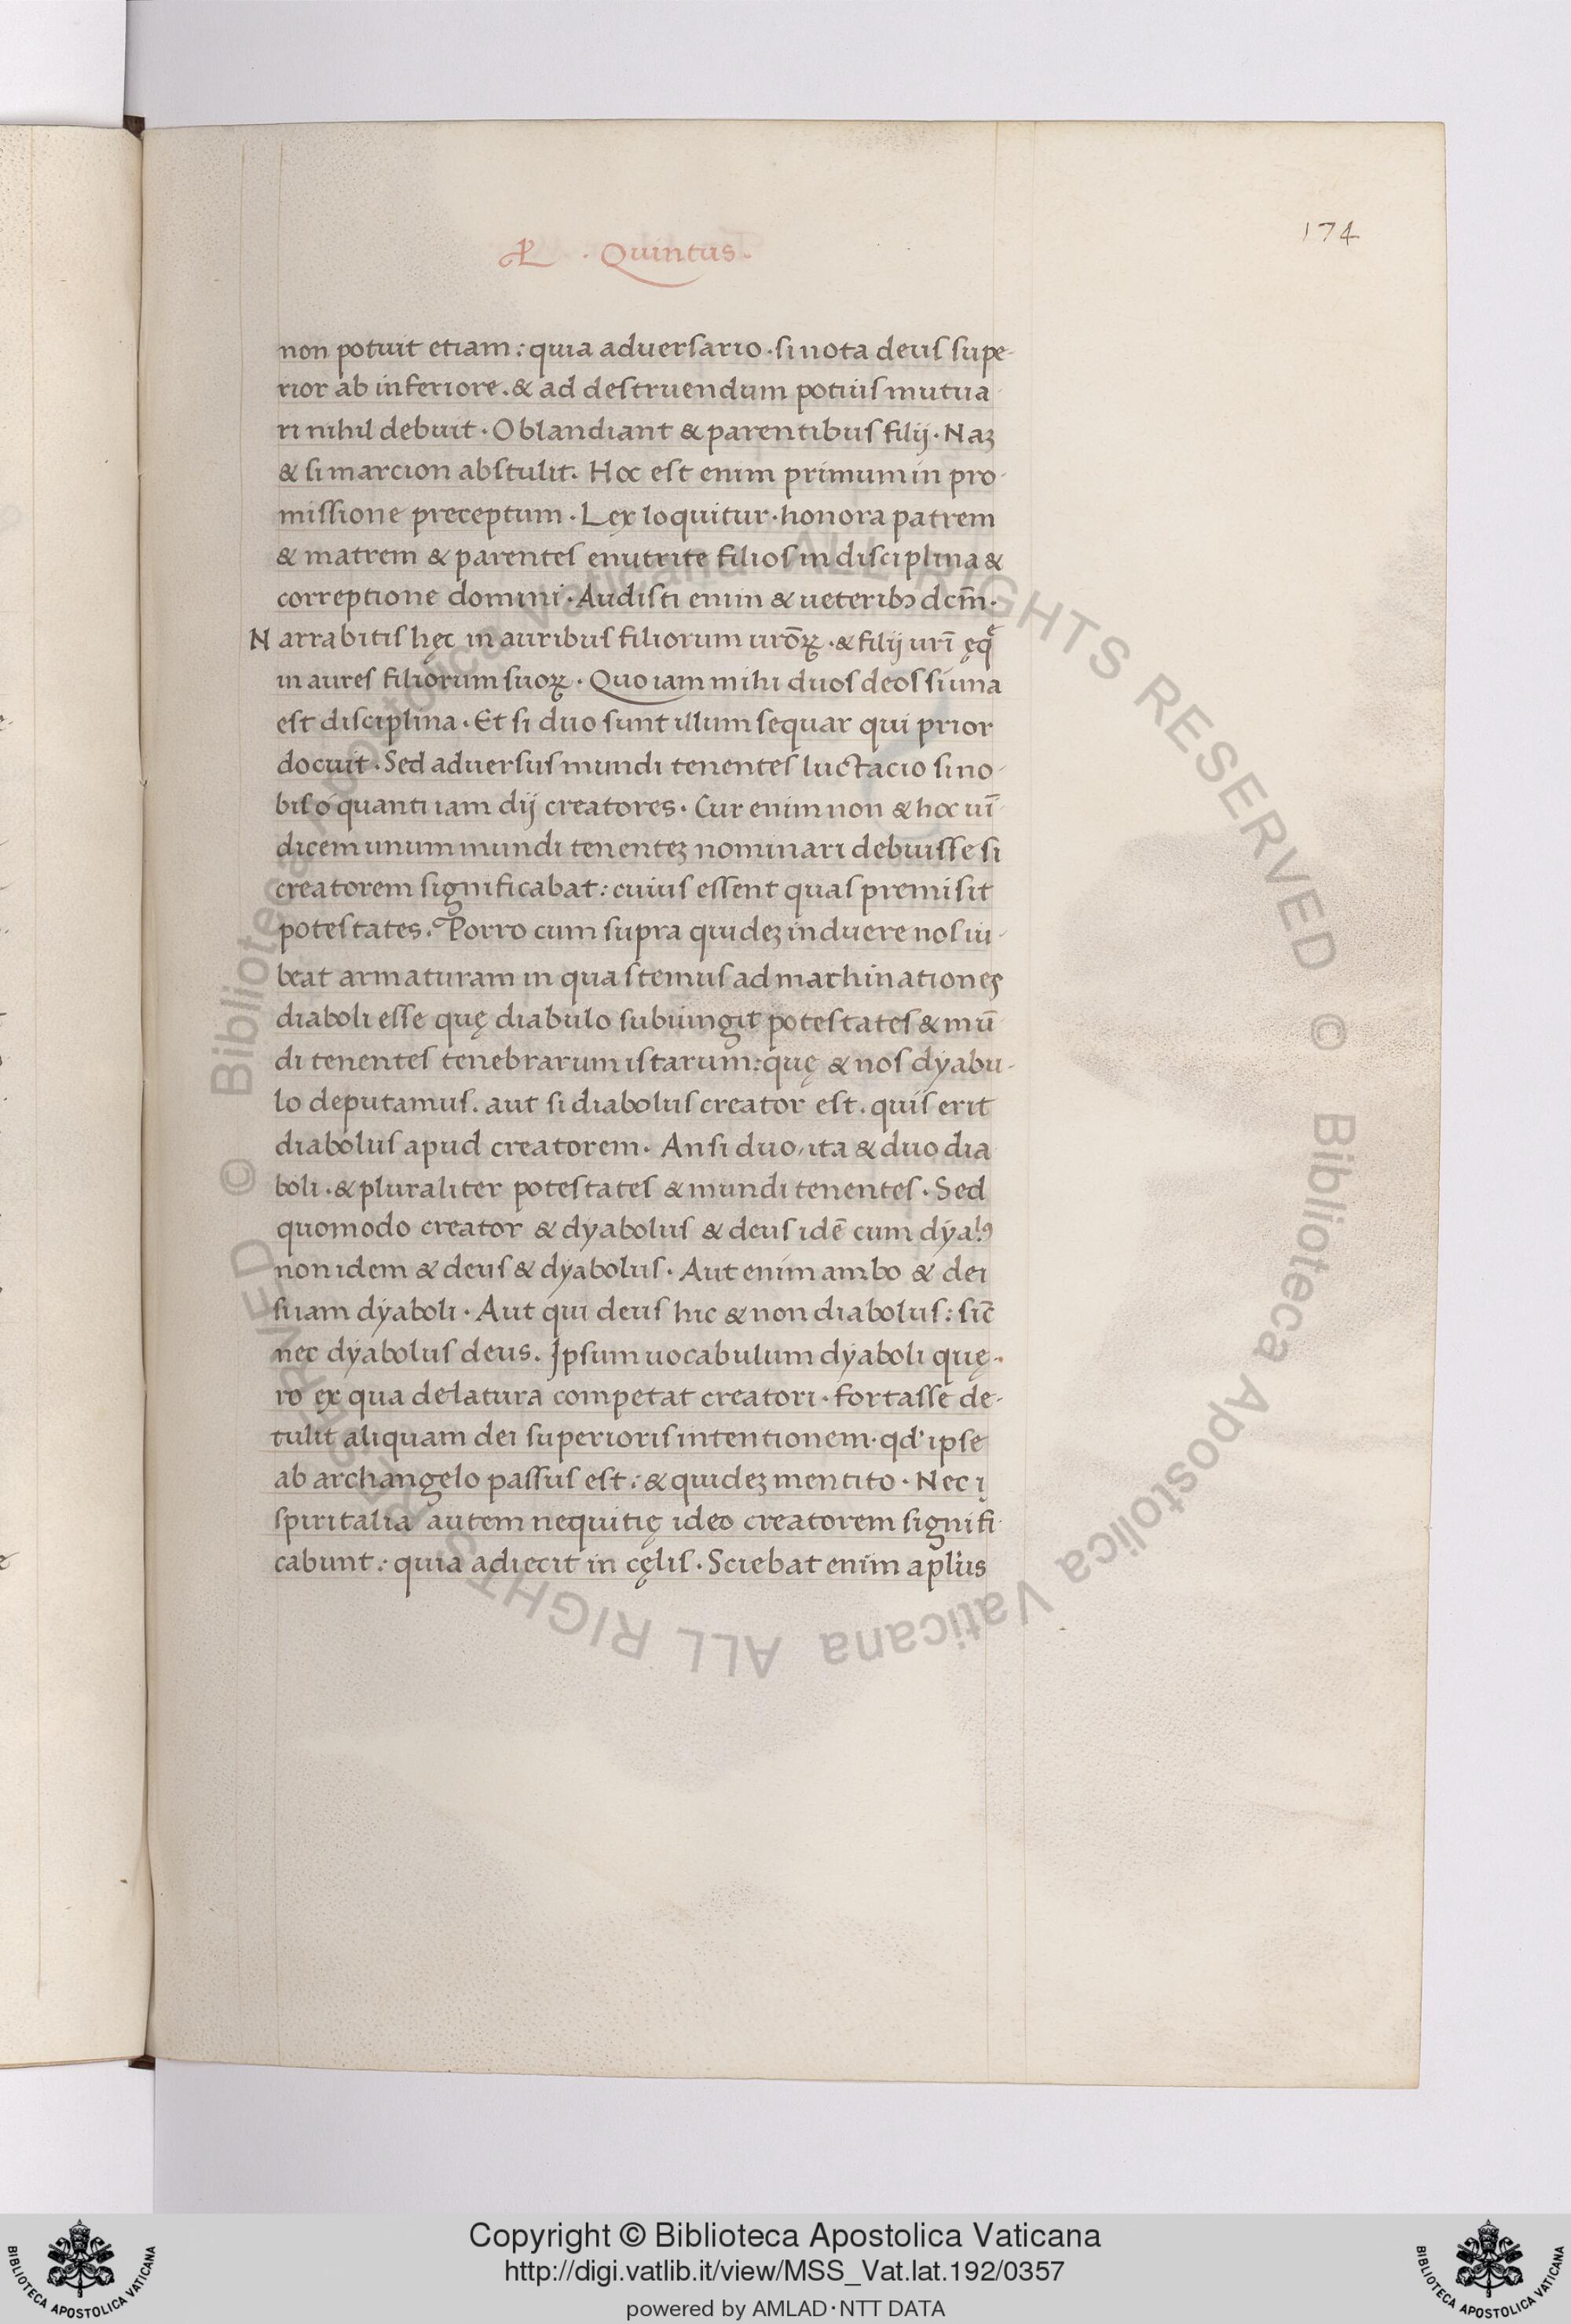 174
L. Quintus.
non potuit etiam: quia aduersario. si nota deus supe-
rior ab inferiore. & ad destruendum potius mutua
ri nihil debuit. Oblandiant & parentibus filij. Naʒ
& si marcion abstulit. Hoc est enim primum in pro-
missione preceptum. Lex loquitur. honora patrem
& matrem & parentes enutrite filios in disciplina &
correptione domini. Audisti enim & ueteribꝫ dcm̄.
Narrabitis hęc in auribus filiorum urōꝝ. & filij urī ęq̄
in aures filiorum suoꝝ. Quo iam mihi duos deos si una
est disciplina. Et si duo sunt illum sequar qui prior
docuit. Sed aduersus mundi tenentes luctacio si no-
bis o quanti iam dij creatores. Cur enim non & hoc uī
dicem unum mundi tenenteʒ nominari debuisse si
creatorem significabat: cuius essent quas premisit
potestates. Porro cum supra quideʒ induere nos iu-
beat armaturam in qua stemus ad machinationes
diaboli esse quę diabulo subiungit potestates & mū
di tenentes tenebrarum istarum: quę & nos dyabu-
lo deputamus. aut si diabolus creator est. quis erit
diabolus apud creatorem. An si duo, ita & duo dia
boli. & pluraliter potestates & mundi tenentes. Sed
quomodo creator & dyabolus & deus idē cum dyal9
non idem & deus & dyabolus. Aut enim ambo & dei
suam dyaboli. Aut qui deus hic & non diabolus: sic̄
nec dyabolus deus. Ipsum uocabulum dyaboli quę-
ro ex qua delatura competat creatori. fortasse de-
tulit aliquam dei superioris intentionem. qd' ipse
ab archangelo passus est: & quideʒ mentito. Nec i
spiritalia autem nequitię ideo creatorem signifi-
cabunt: quia adiecit in cęlis. Sciebat enim apl'us
Copyright © Biblioteca Apostolica Vaticana
http://digi.vatlib.it/view/MSS_Vat.lat.192/0357
powered by AMLAD·NTT DATA
BIBLIOTECA APOSTOLICA VATICANA
BIBLIOTECA APOSTOLICA VATICANA
© Biblioteca Apostolica Vaticana ALL RIGHTS RESERVED
© Biblioteca Apostolica Vaticana ALL RIGHTS RESERVED